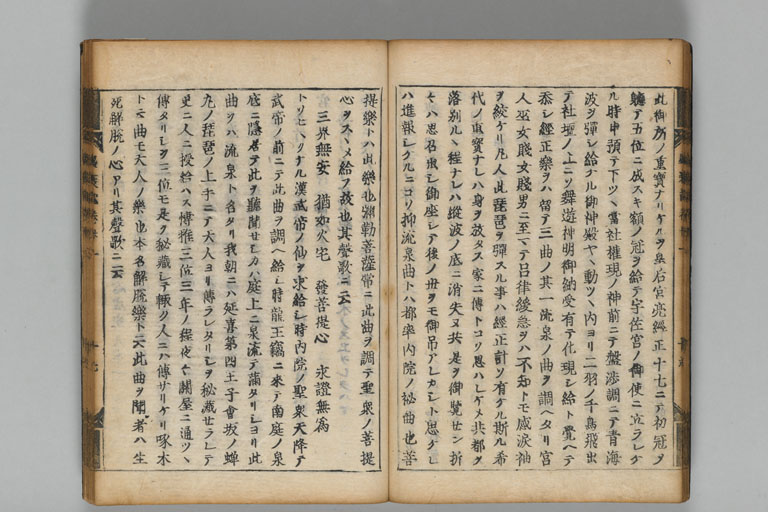 此御所ノ重寶ナリケルヲ皇后宮亮經正十七ニテ初冠ヲ
テ五位ニ成スキ額ノ冠ヲ給テ宇佐宮ノ御使ニ立ラレケ
ル時申預テ下ツヽ當社權現ノ神前ニテ盤渉調ニテ青海
波ヲ彈シ給ケル御神殿ヤヽ動ツヽ内ヨリ二羽ノ千鳥飛出
テ社壇ノ上ニソ舞遊神明御納受有テ化現シ給ト覺ヘテ
忝シ經正樂ヲハ留テ三曲ノ其一流泉ノ曲ヲ調ヘタリ宮
人巫女賤女賤男ニ至マテ呂律緩急ヲハ不知トモ感涙袖
ヲ絞ケリ凡人此琵琶ヲ彈スル事ハ經正計ソ有ケル斯ル希
代ノ重寶ナレハ身ヲ放タス家ニ傳トコソ思ハレケメ共都ヲ
落別ルヽ程ナレハ縱波ノ底ニ消失ヌ共是ヲ御覽セン折
ハ思召出シ御座シテ後ノ世ヲモ御吊アレカシト思ケレ
ハ進報シケルニコソ抑流泉曲トハ都率内院ノ秘曲也菩
提樂トハ此樂也弥勒菩薩常ニ此曲ヲ調テ聖衆ノ菩提
心ヲスヽメ給フ故也其聲歌ニ云
三界無安 猶如火宅 發菩提心 求證無爲
トソヒヽクナル漢武帝ノ仙ヲ求給シ時内院ノ聖衆天降テ
武帝ノ前ニテ此曲ヲ調ヘ給シ時龍王竊ニ來テ南庭ノ泉
底ニ隱居テ此ヲ聽聞セシカハ庭上ニ泉流テ滿タリシヨリ此
曲ヲハ流泉ト名タリ我朝ニハ延喜第四王子會坂ノ蝉
丸ノ琵琶ノ上手ニテ天人ヨリ傳ラレタリシヲ秘藏セラレテ
更ニ人ニ授給ハス博雅三位三年ノ程夜々關屋ニ通ツヽ
傳タリシヲ三位モ是ヲ秘藏シテ輙ク人ニハ傳サリケリ啄木
ト云曲モ天人ノ樂也本名解脱樂ト云此曲ヲ聞者ハ生
死解脱ノ心アリ其聲歌ニ云